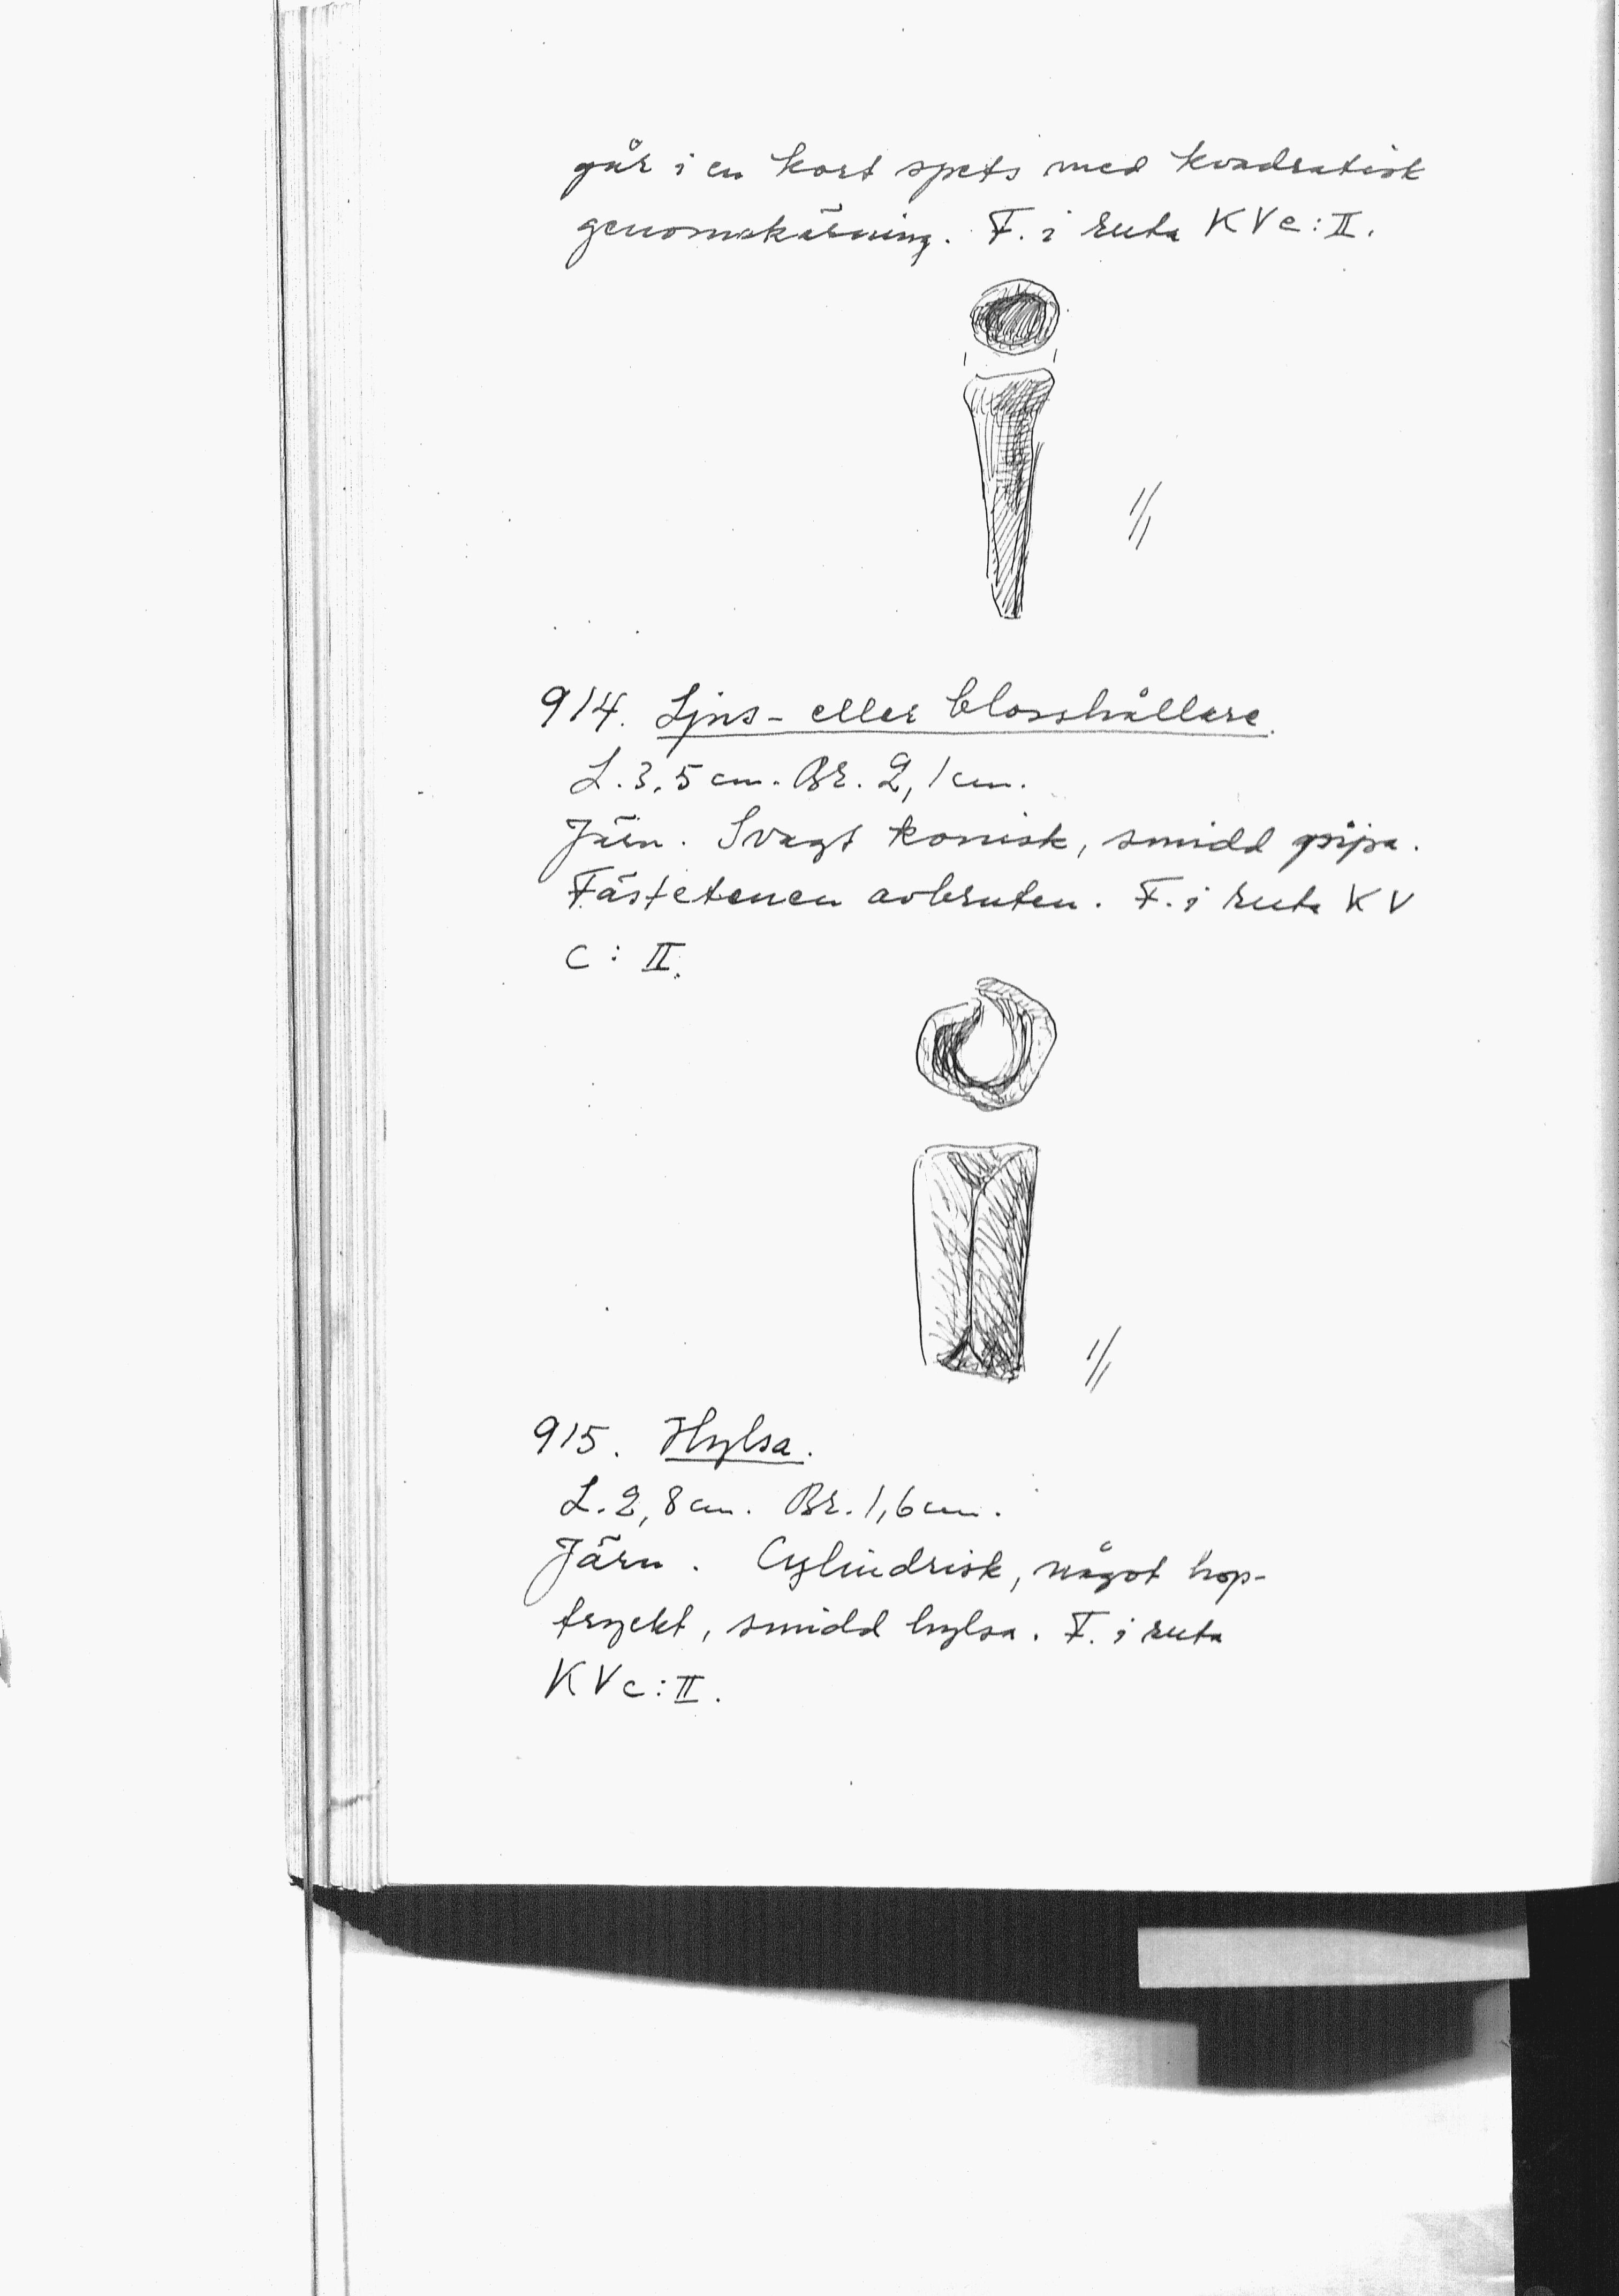 går i en kort spets med kvadratisk
genomskärning. F. i ruta KVc:II.
1/1
914. Ljus- eller blosshållare.
L. 3,5 cm. Br. 2,1 cm.
Järn. Svagt konisk, smidd pipa.
Fästetenen avbruten. F. i ruta KV
C: II.
1/1
915. Hylsa.
L. 2,8 cm. Br. 1,6 cm.
Järn. Cylindrisk, något hop-
tryckt, smidd hylsa. F. i ruta
KVc:II.